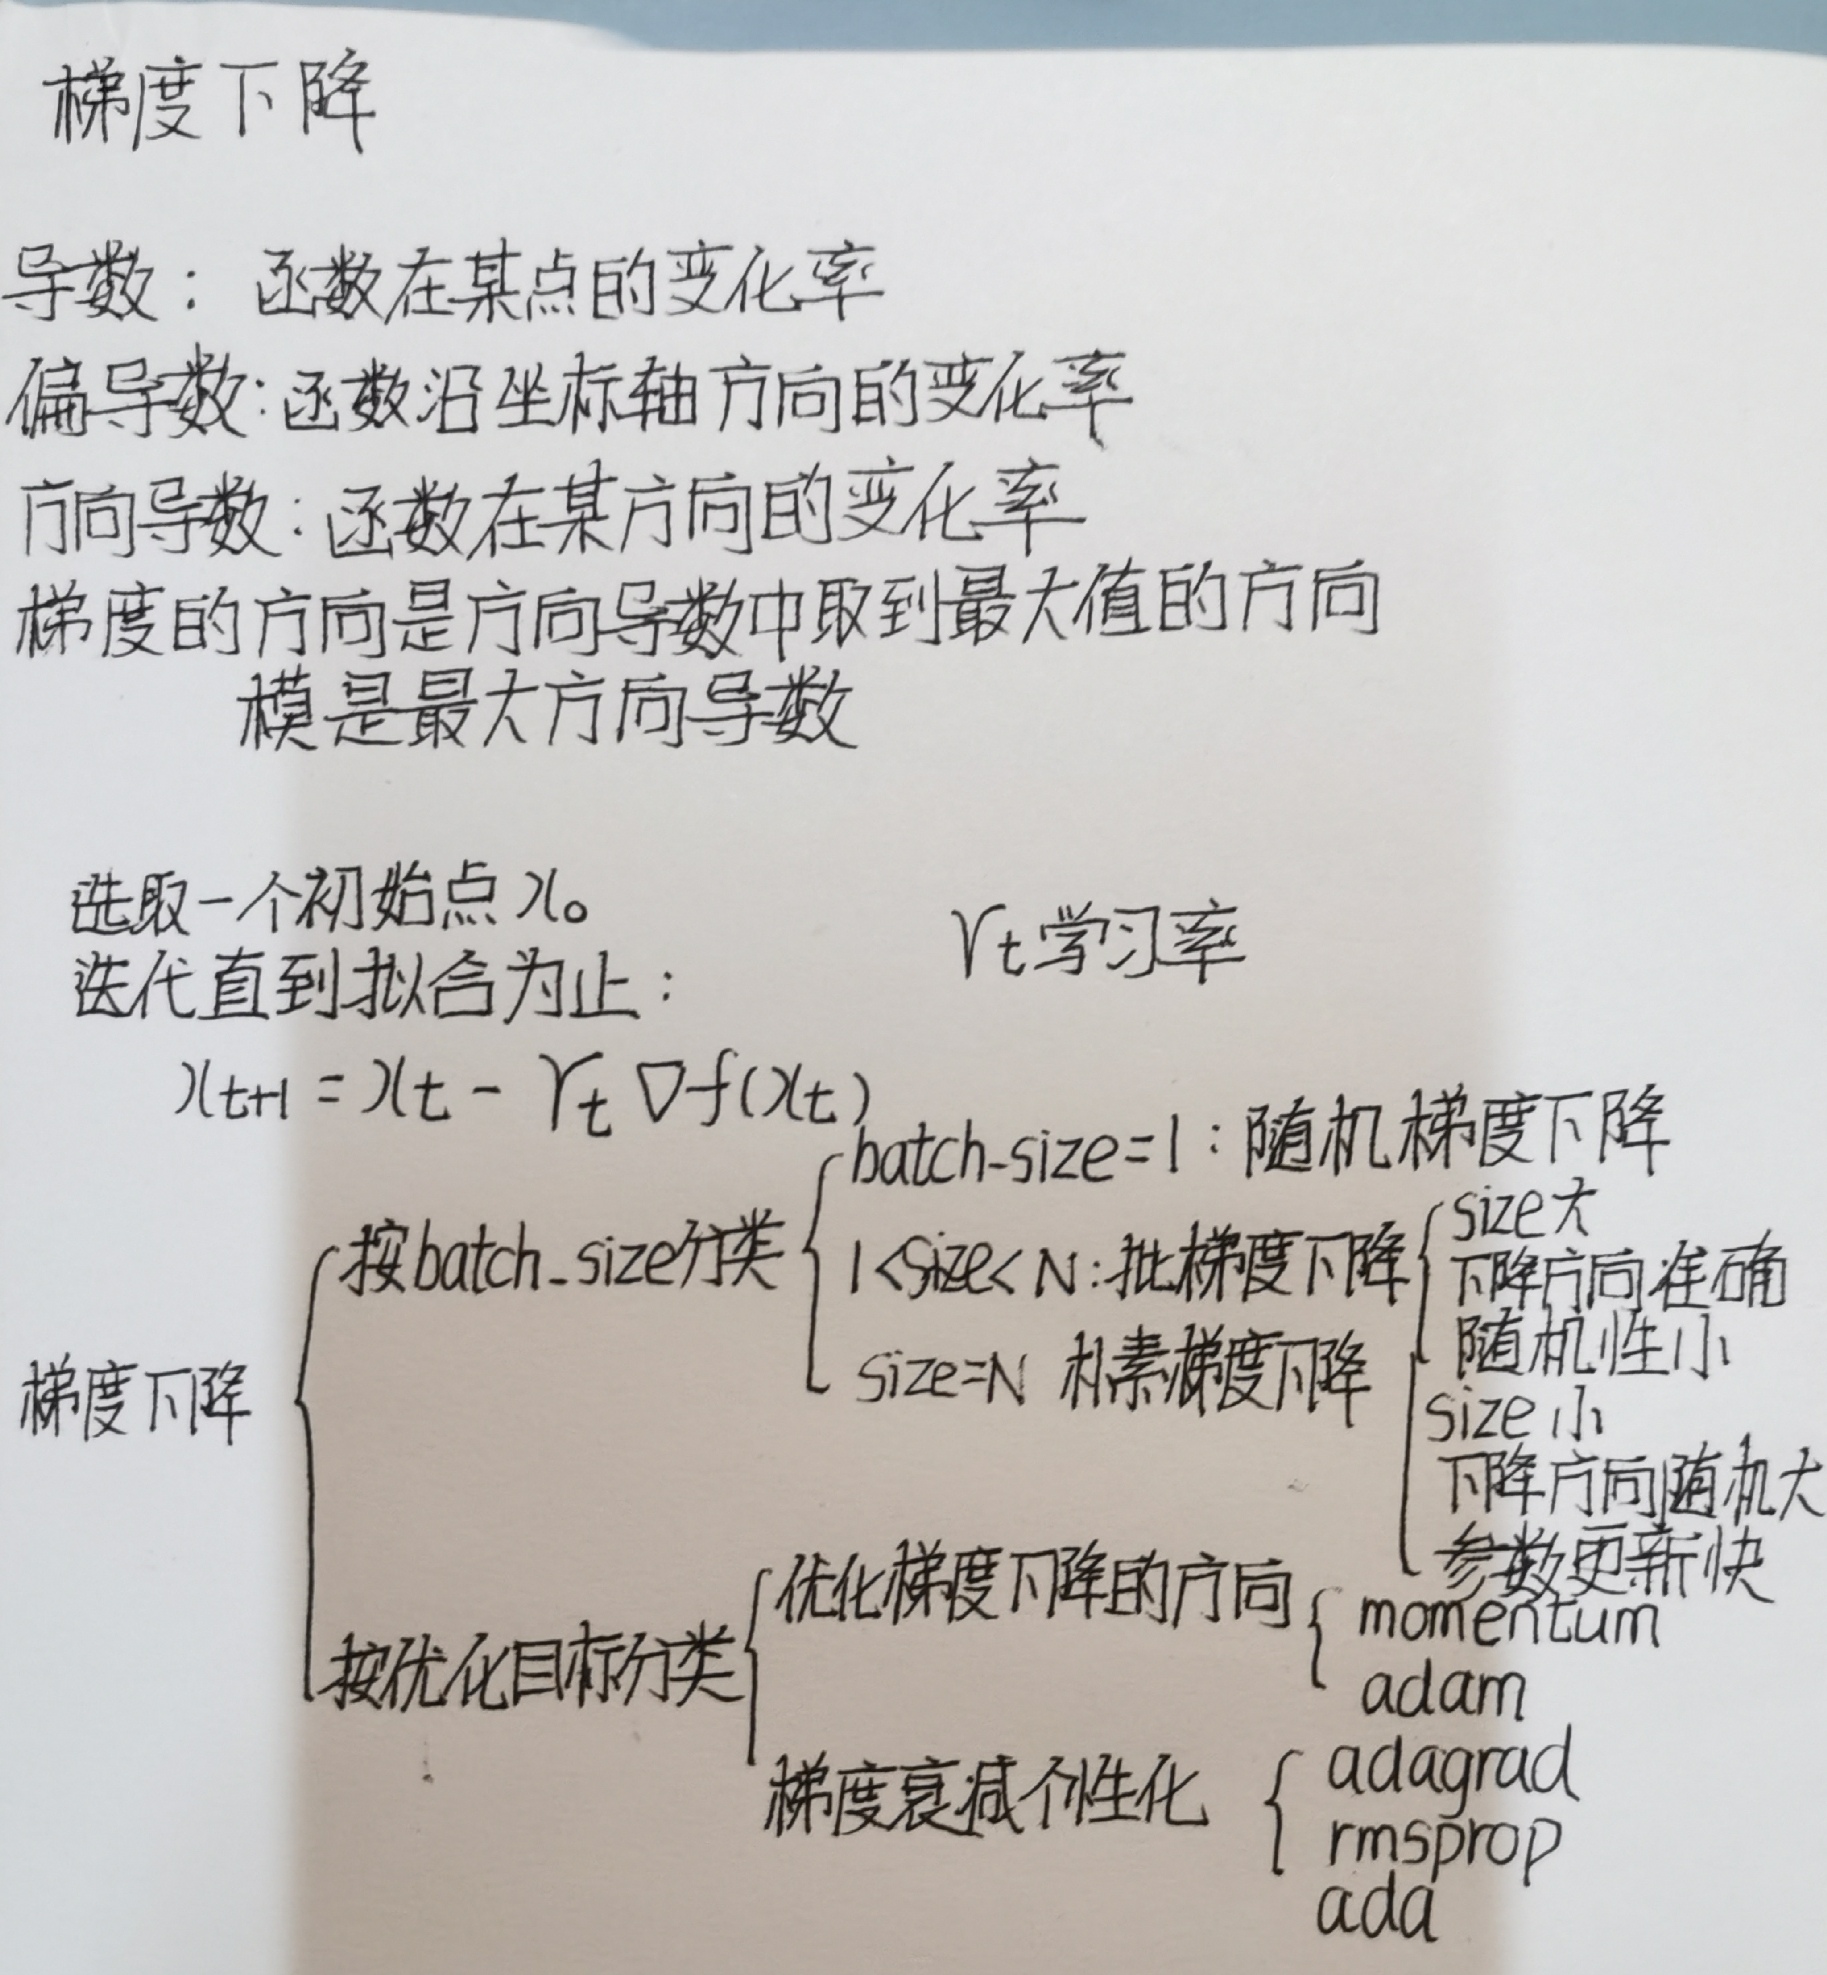 梯度下降
导数：函数在某点的变化率
偏导数：函数沿坐标轴方向的变化率
方向导数：函数在某方向的变化率
梯度的方向是方向导数中取到最大值的方向
模是最大方向导数
选取一个初始点x₀
γt学习率
迭代直到拟合为止：
xt+1 = xt - γt ∇f(xt)
梯度下降
按batch_size分类
batch-size=1：随机梯度下降
1<size<N：批梯度下降
size大
下降方向准确
随机性小
size小
下降方向随机大
参数更新快
size=N 朴素梯度下降
按优化目标分类
优化梯度下降的方向
momentum
adam
梯度衰减个性化
adagrad
rmsprop
ada